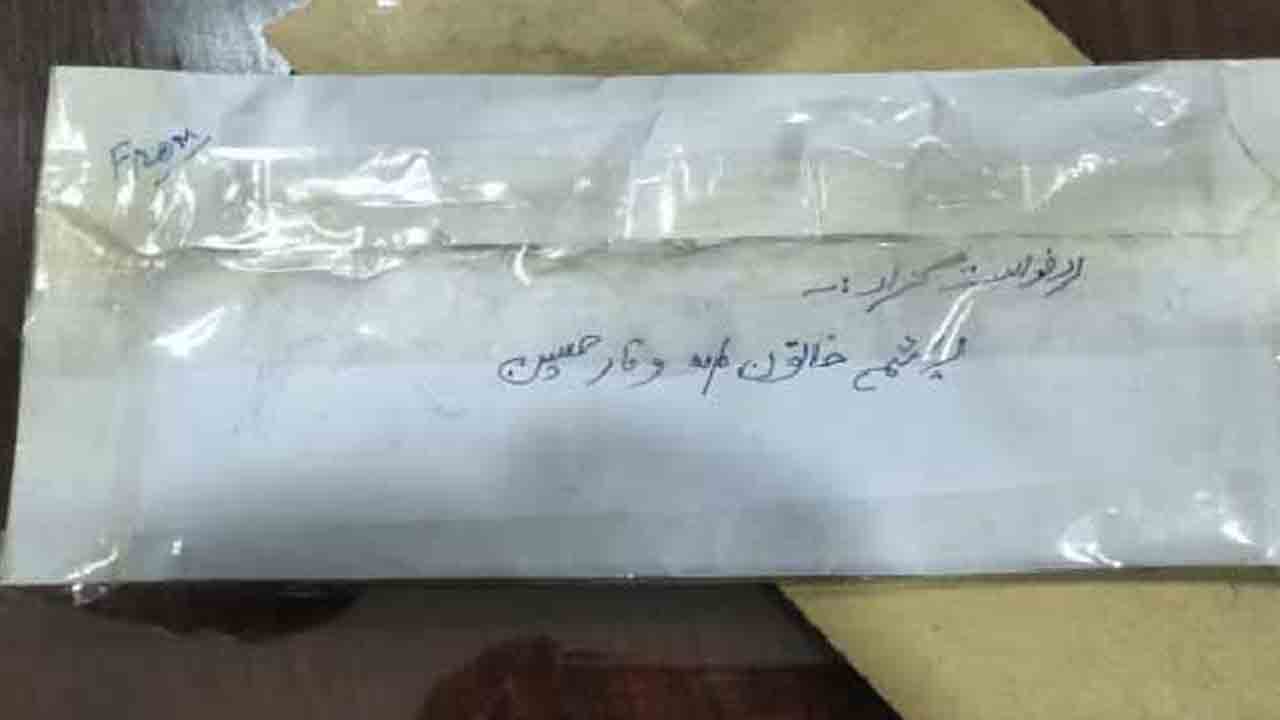 From
درخواست گزار :۔
ریشم خاتون زوجہ وقار حسین